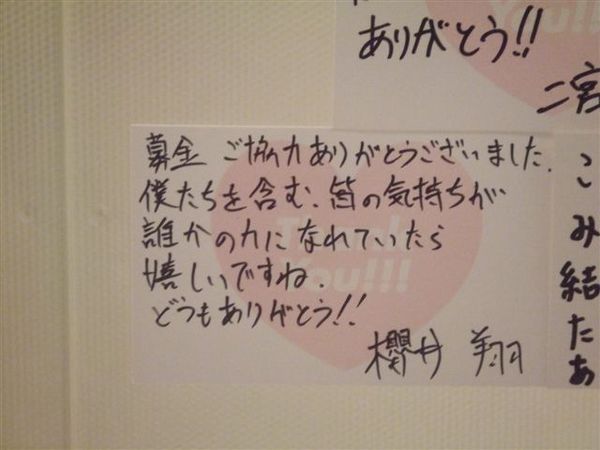 ありがとう!!
二宮
募金 ご協力ありがとうございました.
僕たちを含む、皆の気持ちが
誰かの力になれていたら
嬉しいですね.
どうもありがとう!!
櫻井 翔
Thank
You!!!
You!!!
こ
み
結
た
あ